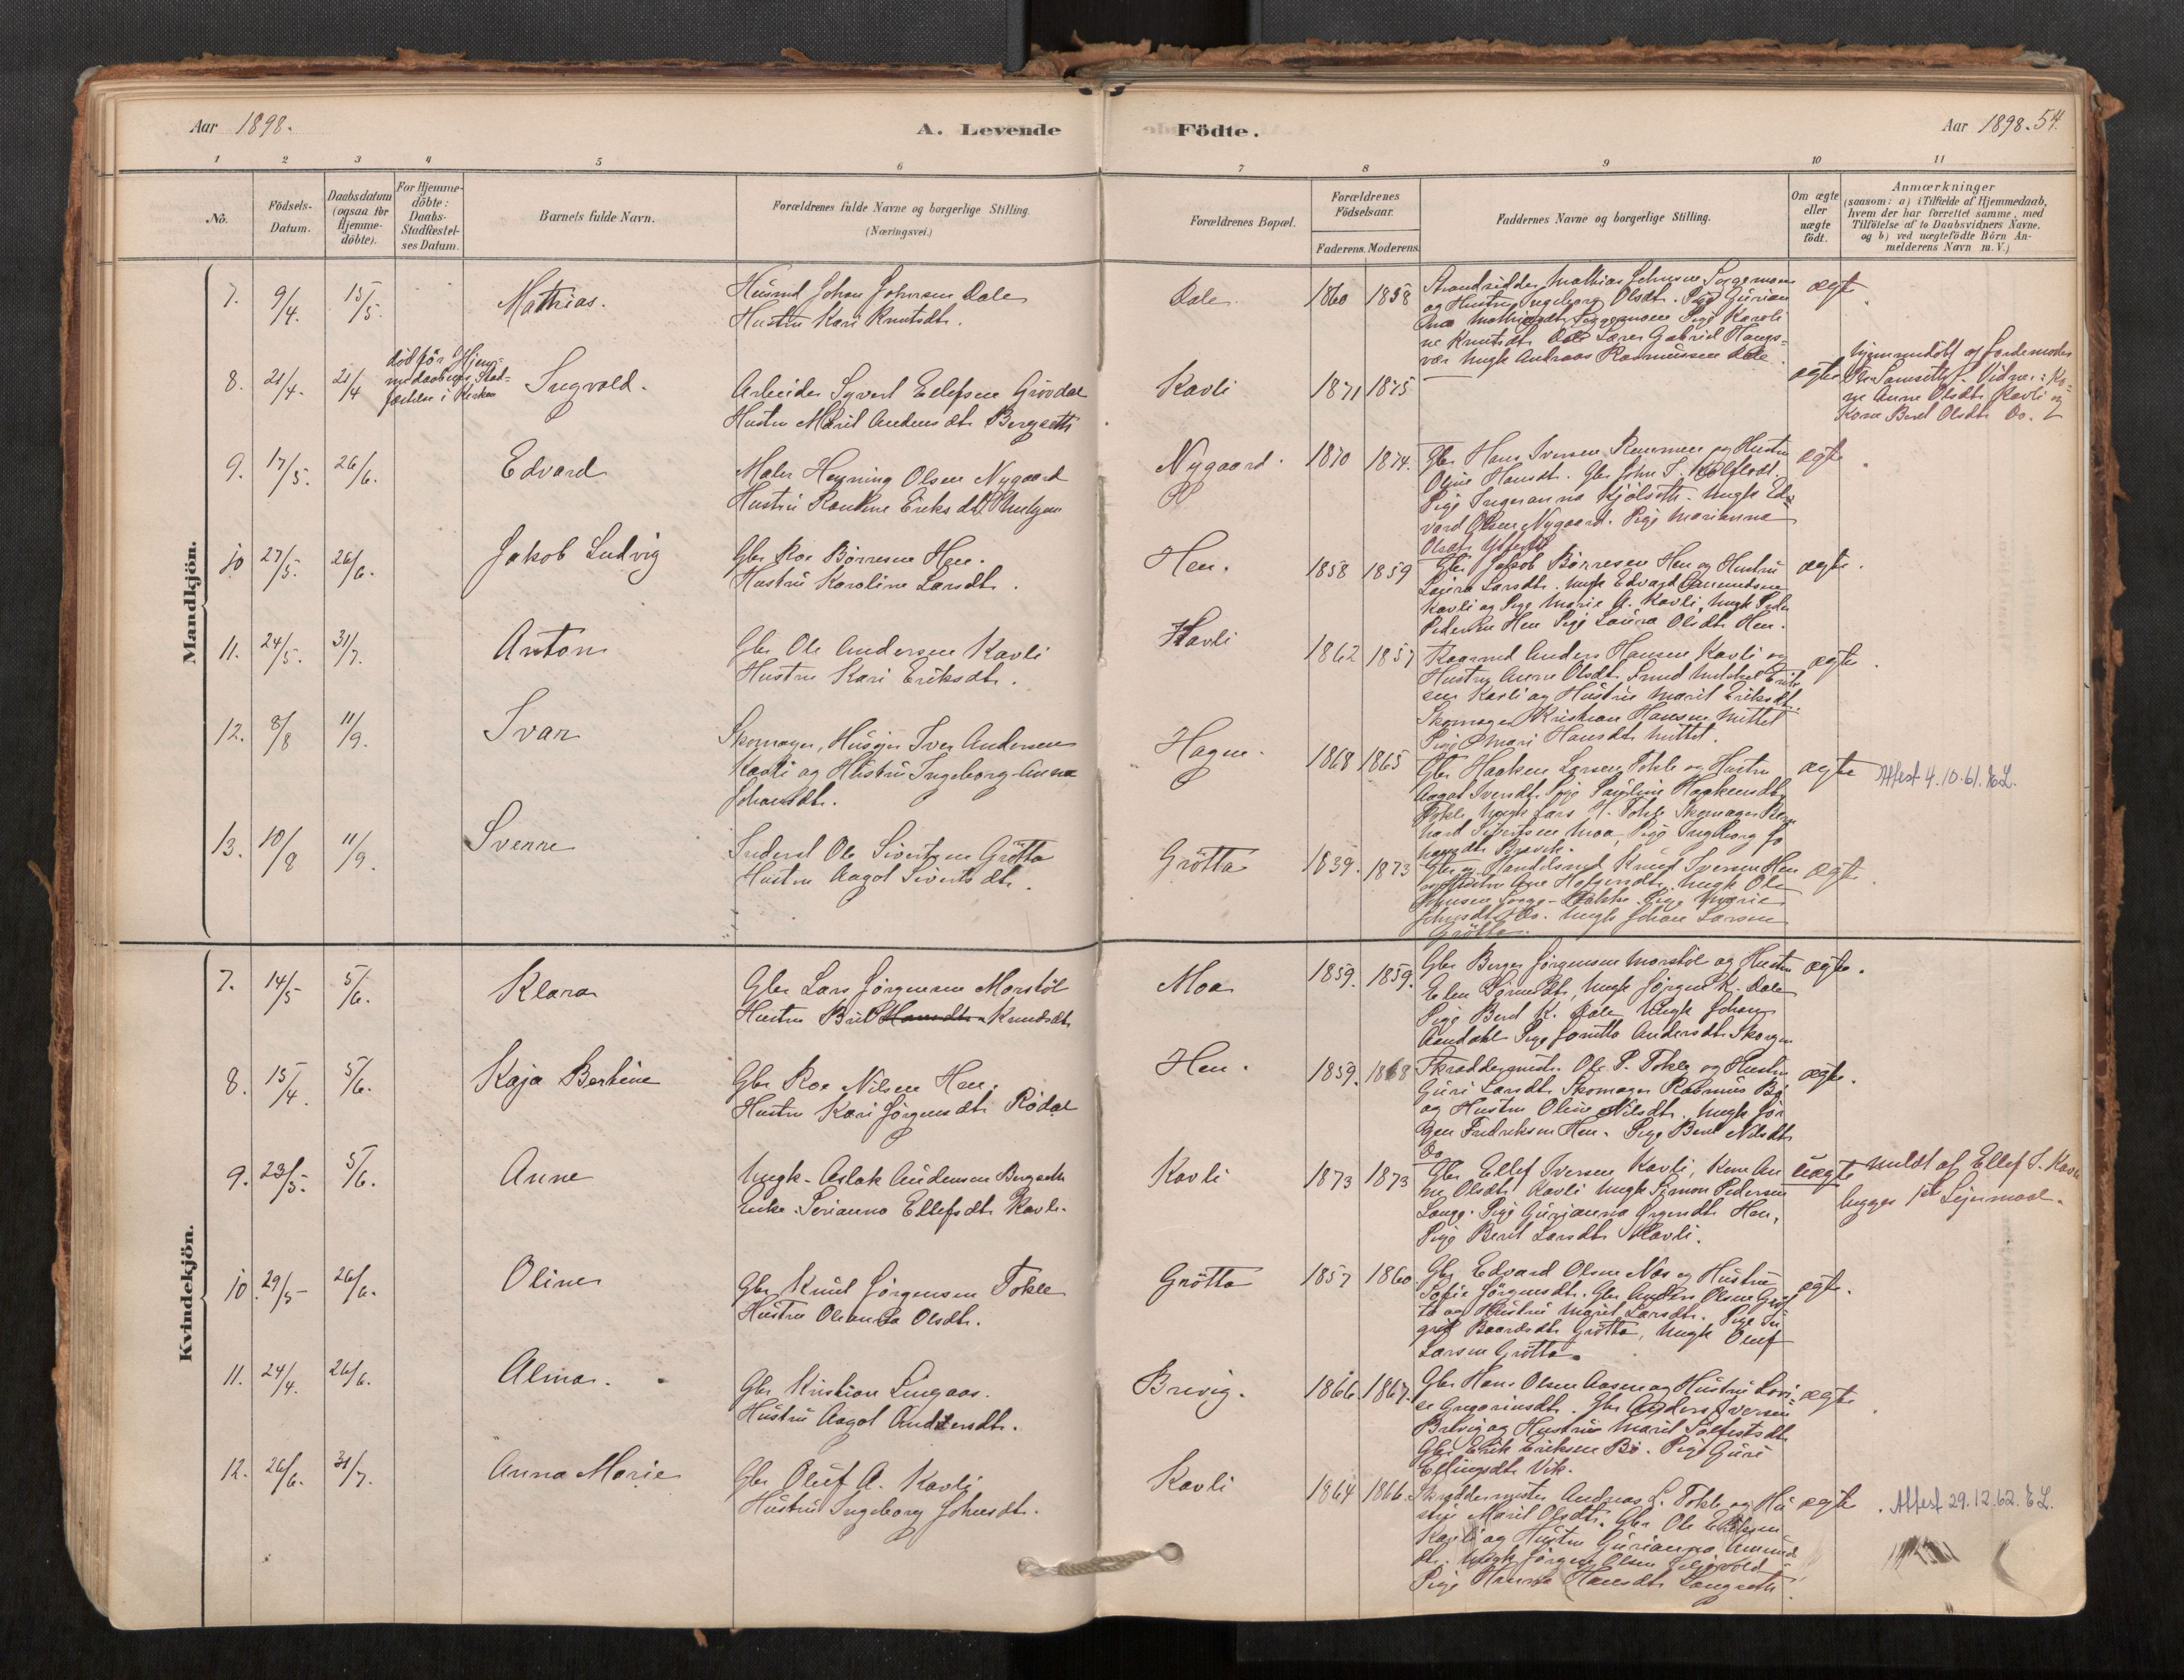 Aar 1898.
A. Levende
Födte.
Aar 1898. 54.
1 2 3 4 5 6 7 8 9 10 11
No.
Födsels-
Datum.
Daabsdatum
(ogsaa for
Hjemme-
döbte).
For Hjemme-
döbte:
Daabs-
Stadfæstel-
ses Datum.
Barnets fulde Navn.
Forældrenes fulde Navne og borgerlige Stilling.
(Næringsvei.)
Forældrenes Bopæl.
Forældrenes
Födselsaar.
Faderens. Moderens.
Faddernes Navne og borgerlige Stilling.
Om ægte
eller
uægte
födt.
Anmærkninger
(saasom: a) i Tilfælde af Hjemmedaab,
hvem der har forrettet samme, med
Tilföielse af to Daabsvidners Navne,
og b) ved uægtefödte Börn An-
melderens Navn m. V.)
Mandkjön.
7. 9/4. 15/5. Mathias.
Husmd Johan Johnsen Dale
Hustru Kari Knutsdtr.
Dale 1860 1858
og Hustru Ingeborg Olsdtr. Pige Gurian
ægte
8. 21/4. 21/4
död før Hjem-
medaabens Stad-
fæstelse i Kirken
Ingvold.
Arbeider Syvert Ellefsen Grövdal
Hustru Marit Andersdtr Bergseth
Kavli 1871 1875
ægte
hjemmedöbt af Jordemoder
Vidner: Ko-
ne Anne Olsdtr Kavli og
Kone Beret Olsdtr Do.
9. 17/5. 26/6. Edvard
Maler Henning Olsen Nygaard
Hustru
Nygaard. 1870 1874.
Gbr Hans Iversen og Hustru
Oline Hansdtr.
Pige Ingeranna Kjölseth. Ungk Ed-
vard Olsen Nygaard. Pige Marianna
ægte
10 27/5. 26/6. Jakob Ludvig
Gbr Roe Börresen Hen.
Hustru Karoline Larsdtr.
Hen. 1858 1859
Gbr Jakob Börresen Hen og Hustru
Laura Larsdtr. Ungk Edvard Amundsen
Kavli og Pige Marie A. Kavli, Ungk Peder
Pedersen Hen Pige Laura Olsdtr Hen.
ægte.
11. 24/5. 31/7. Anton
Gbr Ole Andersen Kavli
Hustru Kari Eriksdtr.
Kavli 1862 1857
Kaarmd Anders Hansen Kavli og
Hustru Anne Olsdtr
sen Kavli og Hustru Marit Eriksdtr.
Skomager Kristian Hansen Mittet
Pige Mari Hansdtr Mittet.
ægte.
12. 8/8 11/9. Ivar
Skomager, Iver Andersen
Kavli og Hustru Ingeborg Anna
Johansdtr.
Hagen. 1868 1865
Gbr Haaken Larsen Tokle og Hustru
Aagot Iversdtr. Pige Pauline Haakensdtr
Tokle, Ungk Lars H. Tokle Skomager Bern
hard Sivertsen Moa, Pige Ingeborg Jo
hansdtr Brevik.
ægte
Attest 4.10.61. EL.
13. 10/8 11/9. Sverre
Inderst Ole Sivertsen Grötta
Hustru Aagot Sivertsdtr.
Grötta 1839. 1873
Gbr og Handelsmd Knud Iversen Hen
Johnsdtr Do. Ungk Johan Larsen
Grötta.
ægte
Kvindekjön.
7. 14/5 5/6. Klara
Gbr Lars Jörgensen Morstöl
Hustru Brit Knudsdtr
Moa 1859. 1859.
Gbr Berger Jörgensen Morstöl og Hustru
Ungk Jörgen K. Dale
Pige Beret K. Dale, Ungk Johan
Aandahl Pige Jonetta Andersdtr Skorgen
ægte.
8. 15/4. 5/6. Kaja Bertine
Gbr Roe Nilsen Hen.
Hustru Kari Jörgensdtr Rödal
Hen. 1859. 1868
Skreddermstr. Ole P. Tokle og Hustru
Guri Larsdtr. Skomager Rasmus Bø
og Hustru Oline Nilsdtr. Ungk Jör
gen Fredriksen Hen. Pige Beret Nilsdtr
Do
ægte.
9. 23/5. 5/6. Anne
Ungk. Aslak Andersen Bergseth
Enke Serianna Ellefsdtr Kavli.
Kavli 1873 1873
Gbr Ellef Iversen Kavli, Kone An
ne Olsdtr Kavli Ungk Simon Pedersen
Pige Berit Larsdtr Kavli.
uægte
meldt af Ellef I. Kavli
begges 1ste Lejermaal.
10. 29/5 26/6. Oline
Gbr Knut Jörgensen Tokle
Hustru Oleanna Olsdtr.
Grötta 1857 1860
Gbr Edvard Olsen Næs og Hustru
Sofie Jörgensdtr. Gbr Anders Olsen Gröt
ta og Hustru Marit Larsdtr. Pige In
grid Baardsdtr Grötta, Ungk Oluf
Larsen Grötta.
ægte.
11. 24/4. 26/6. Alma.
Gbr Kristian Lingaas.
Hustru Aagot Andersdtr.
Brevig. 1866 1867.
Gbr Hans Olsen Aasen og Hustru Lovi-
se Gregoriusdtr. Gbr Anders Iversen
Brevig og Hustru Marit Tolfestsdtr
Gbr Erik Eriksen Bö. Pige Guri
Ellingsdtr Vik.
ægte
12. 26/6. 31/7. Anna Marie
Gbr Oluf A. Kavli
Hustru Ingeborg Johnsdtr.
Kavli 1864 1866.
Skreddermester Andreas L. Tokle og Hu
stru Marit Olsdtr. Gbr Ole Eriksen
Kavli og Hustru Gurianna Amunds
dtr. Ungk Jörgen Olsen
Pige Hanna Hansdtr Langseth.
ægte
Attest 29.12.62. EL.